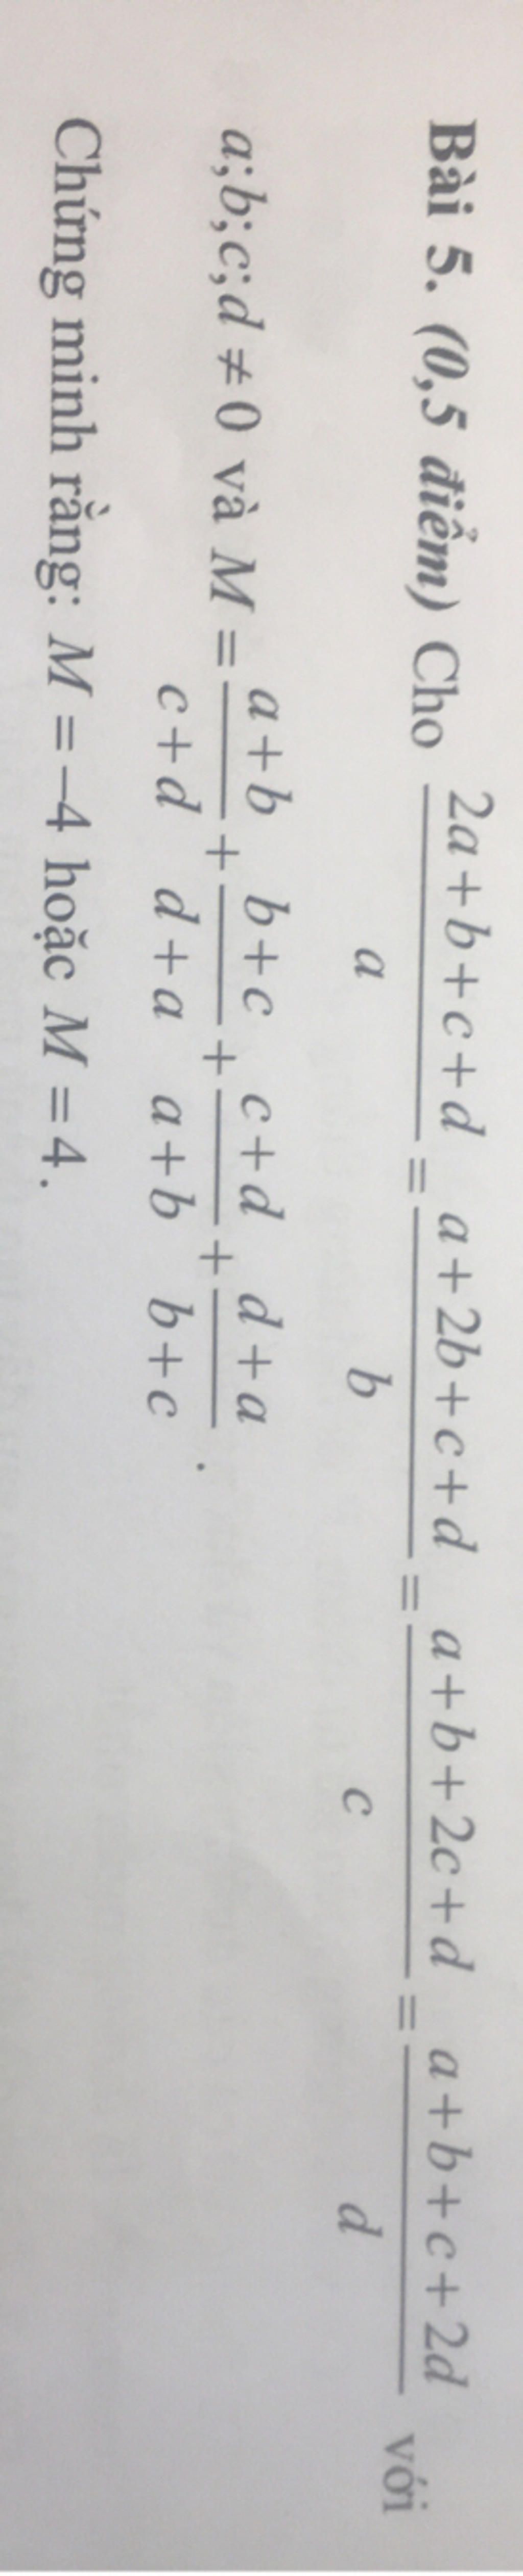 Bài 5. (0,5 điểm) Cho \frac{2a+b+c+d}{a} = \frac{a+2b+c+d}{b} = \frac{a+b+2c+d}{c} = \frac{a+b+c+2d}{d} với
a;b;c;d ≠ 0 và M = \frac{a+b}{c+d} + \frac{b+c}{d+a} + \frac{c+d}{a+b} + \frac{d+a}{b+c}.
Chứng minh rằng: M = –4 hoặc M = 4.